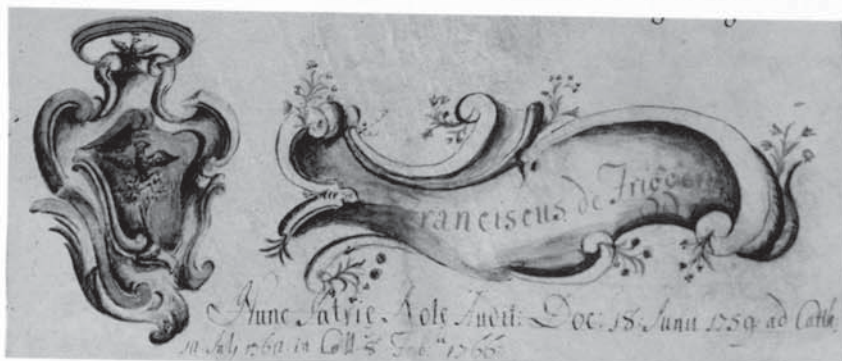 Franciscus de Frigger
Nunc Patrie Rote Audit: Doc: 18 Junii 1759 ad Cath:
in July 1760 in Coll: 1766